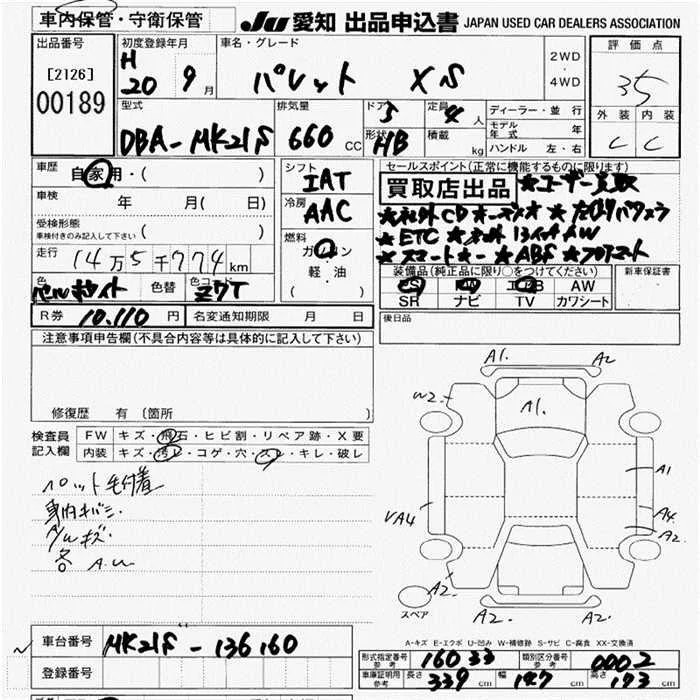 車内保管・守衛保管
JU 愛知 出品申込書 JAPAN USED CAR DEALERS ASSOCIATION
出品番号 [2126] 00189
初度登録年月 H 20 9月
車名・グレード パレット XS
2WD・4WD
評価点 3.5
外装 C 内装 C
型式 DBA-MK21S
排気量 660 CC
ドア 5
形状 HB
定員 4人
積載 kg
ディーラー・並行
モデル年式 年
ハンドル 左・右
車歴 自家用・( )
車検 年 月( 日)
受検形態 車検付きのみ記入して下さい ( )
走行 14万5千774km
シフト IAT
冷房 AAC
燃料 ガソリン 軽・油 ( )
セールスポイント(正常に機能するものに限ります)
買取店出品 ★ユーザー買取
★社外CDオーディオ
★ETC ★社外13インチAW
★スマートキー ★ABS ★フロアマット
色 パールホワイト 色替 色コード Z7T
装備品(純正品に限り○をつけてください)
PS PW エアB AW
SR ナビ TV カワシート
新車保証書
R券 10.110円 名変通知期限 月 日
後日品
注意事項申告欄(不具合内容等は具体的に記入して下さい)
修復歴 有 (箇所 )
検査員記入欄
FW キズ・飛石・ヒビ割・リペア跡・X要
内装 キズ・汚レ・コゲ・穴・スレ・キレ・破レ
ペット毛付着
車内キバミ
各 A.U
A1. A2
W2. A1.
A1
VA4 A4
A2.
A2. スペア A2. A2.
A-キズ E-エクボ U-凹み W-補修跡 S-サビ C-腐食 XX-交換済
車台番号 MK21S-136160
登録番号
形式指定番号 参考 16033 類別区分番号 参考 0002
車庫証明用 参考 長さ 339cm 幅 147cm 高さ 173cm